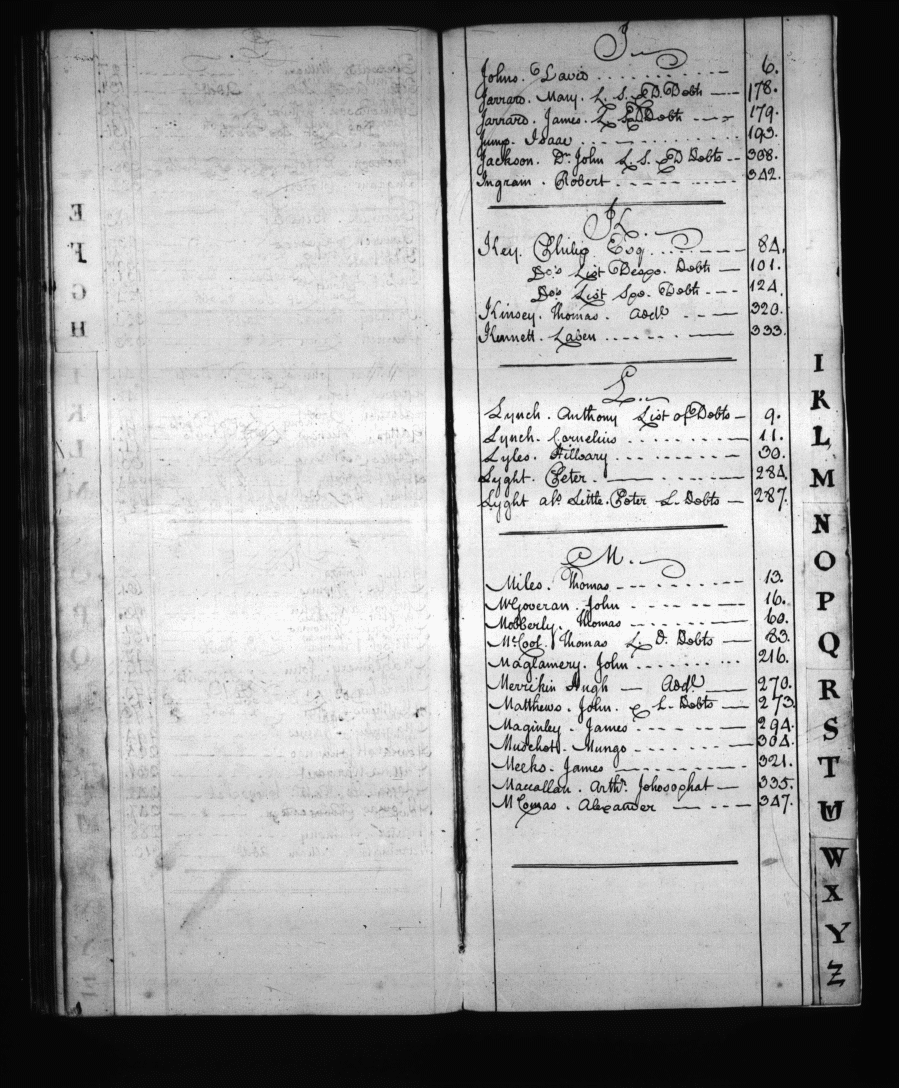 J
Johns. David 6.
Jarrard. Mary. L. S. & D Debts 178.
Jarrard. James. L S. & D Debts 179.
Jump. Isaac 193.
Jackson. Dr. John L. S. & D Debts 308.
Ingram. Robert 342.
K.
Key. Philip Esq. 84.
Do's List Despo. Debts 101.
Do's List Spe. Debts 124.
Kinsey. Thomas. Addl. 320.
Kennett. 333.
L.
Lynch. Anthony List of Debts 9.
Lynch. Cornelius 11.
Lyles. Hillary 30.
Lyght. Peter. 284.
Lyght als. Little. Peter L. Debts 287.
M.
Miles. Thomas 13.
McGoveran. John 16.
Mobberly. Thomas 60.
McCool. Thomas L. D. Debts 83.
Maglamery. John 216.
Merrikin Hugh Addl. 270.
Matthews. John. L. Debts 273.
Maginley. James 294.
Mungo 304.
Meeks. James 321.
Maccallan. Arthr. Johosophat 335.
McComas. Alexander 347.
E
F
G
H
I
K
L
M
N
O
P
Q
R
S
T
W
X
Y
Z